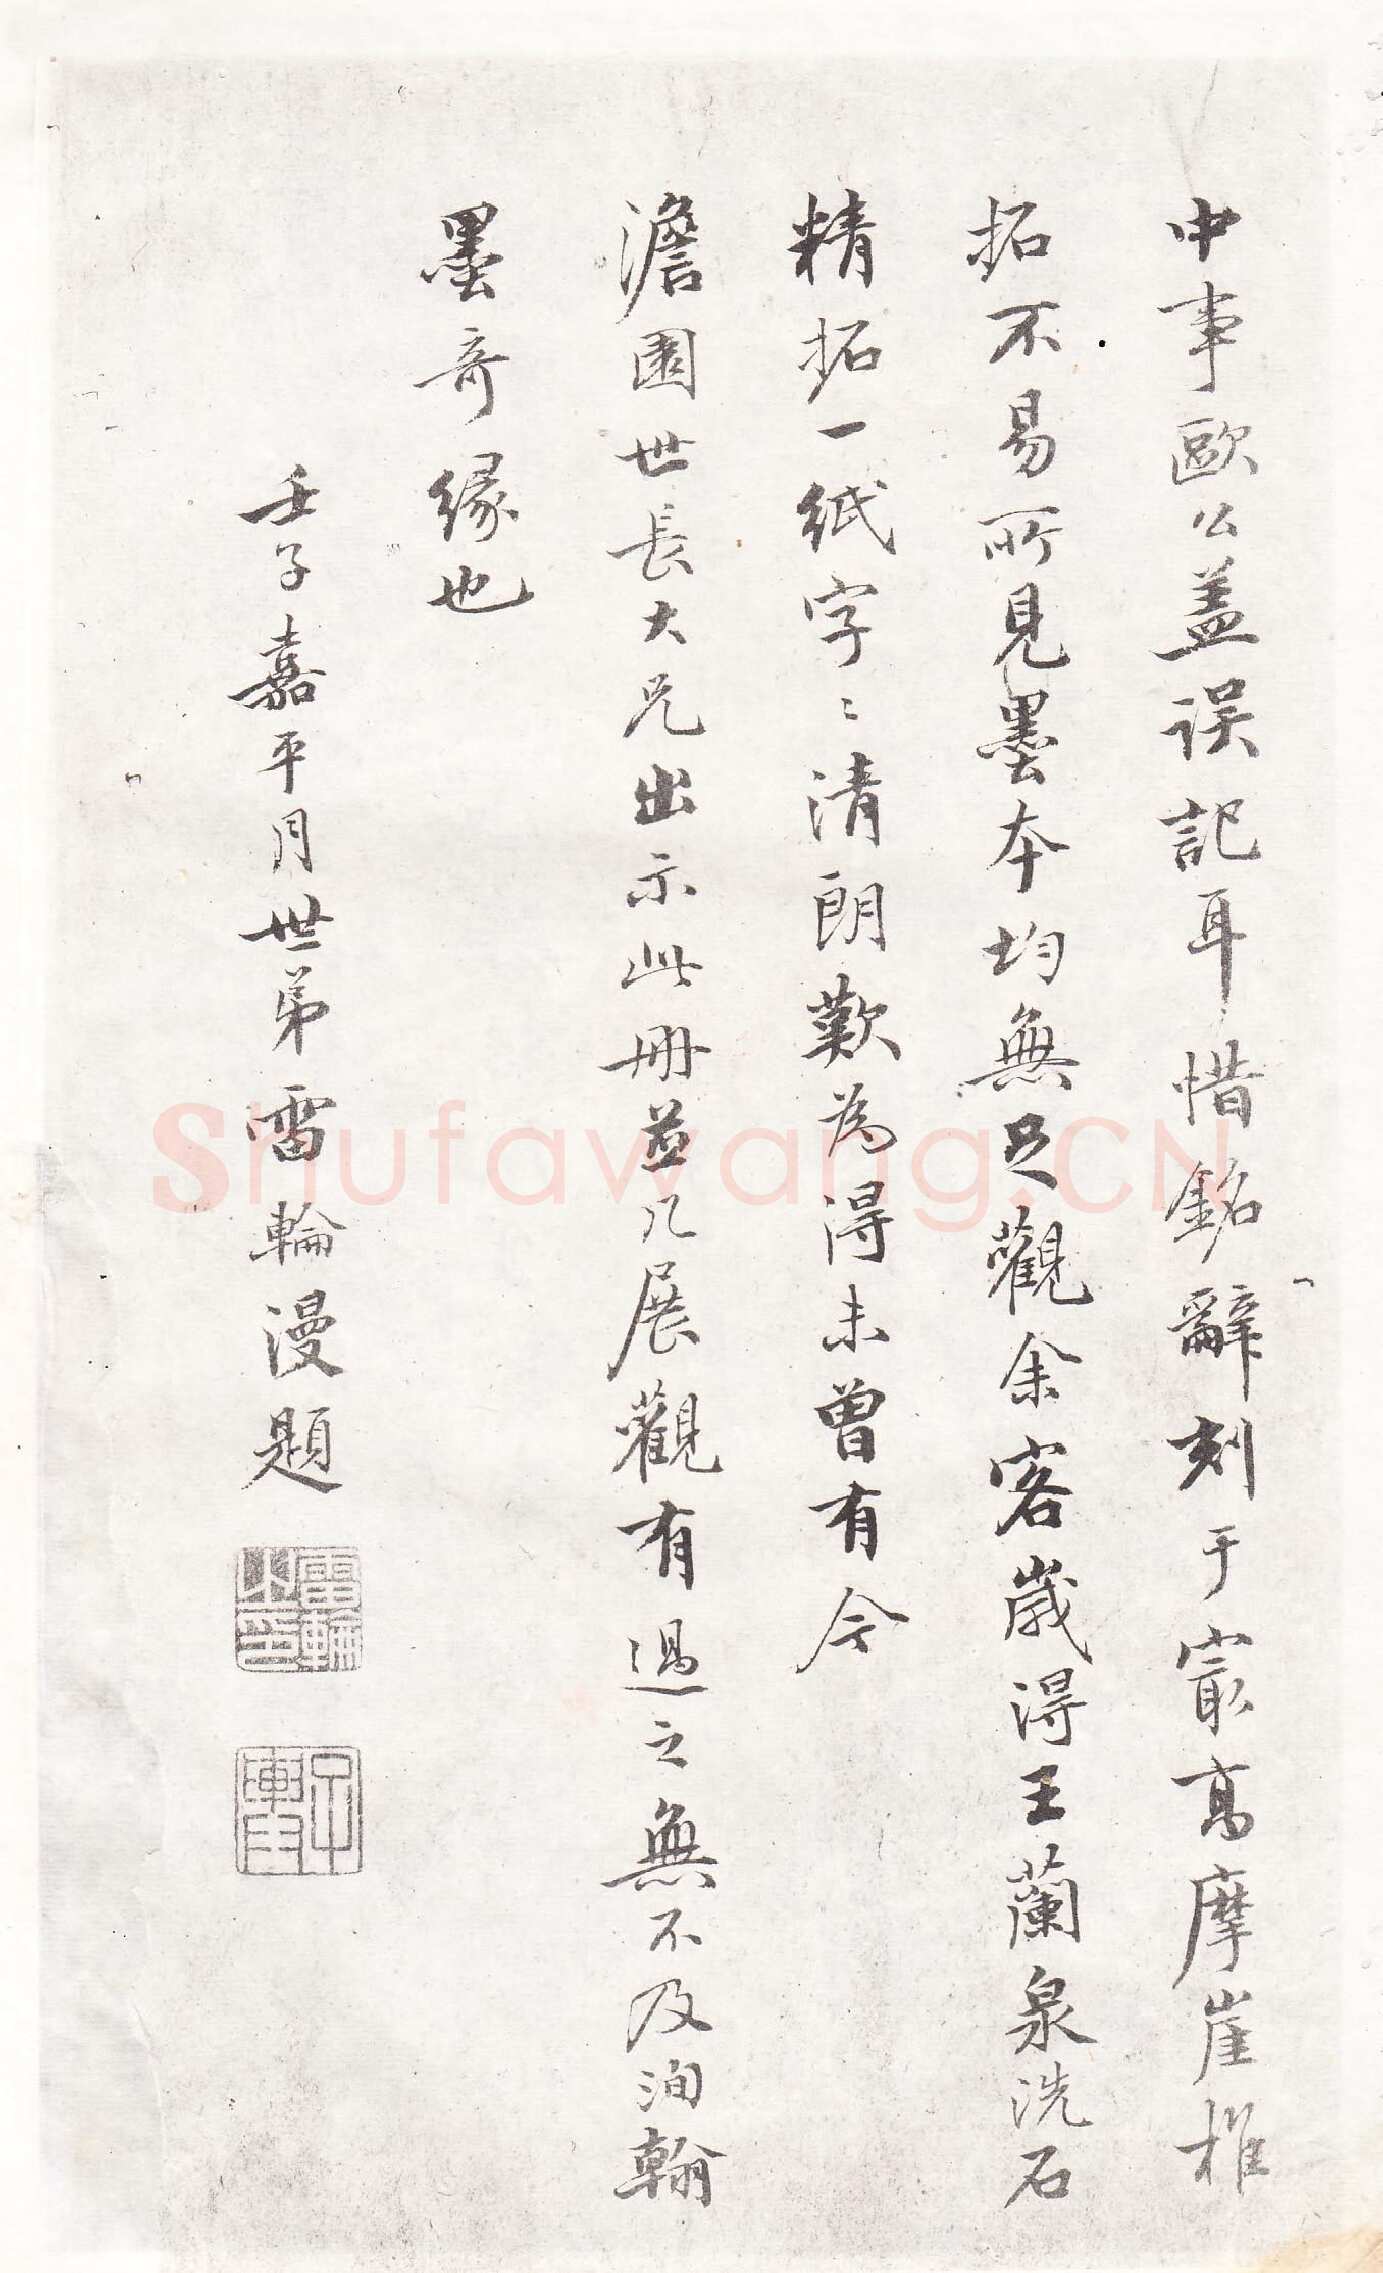 中事歐公蓋误記耳惜銘辭刻于寂高摩崖椎
拓不易所見墨本均無足觀余客歲得王蘭泉洗石
精拓一紙字〻清朗歎為得未曾有今
澹園世長大兄出示此冊並几展觀有過之無不及洵翰
墨奇緣也
壬子嘉平月世弟雷輪漫題
雷輪
Shufawang.CN